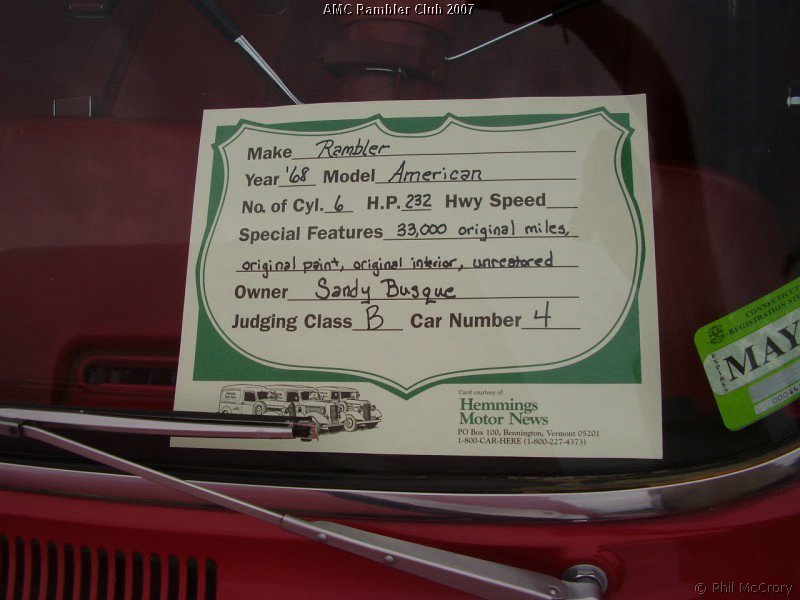 AMC Rambler Club 2007
Make Rambler
Year '68 Model American
No. of Cyl. 6 H.P. 232 Hwy Speed
Special Features 33,000 original miles,
original paint, original interior, unrestored
Owner Sandy Busque
Judging Class B Car Number 4
Card courtesy of
Hemmings
Motor News
PO Box 100, Bennington, Vermont 05201
1-800-CAR-HERE (1-800-227-4373)
CONNECTICUT
REGISTRATION
EXPIRES
MAY
© Phil McCrory